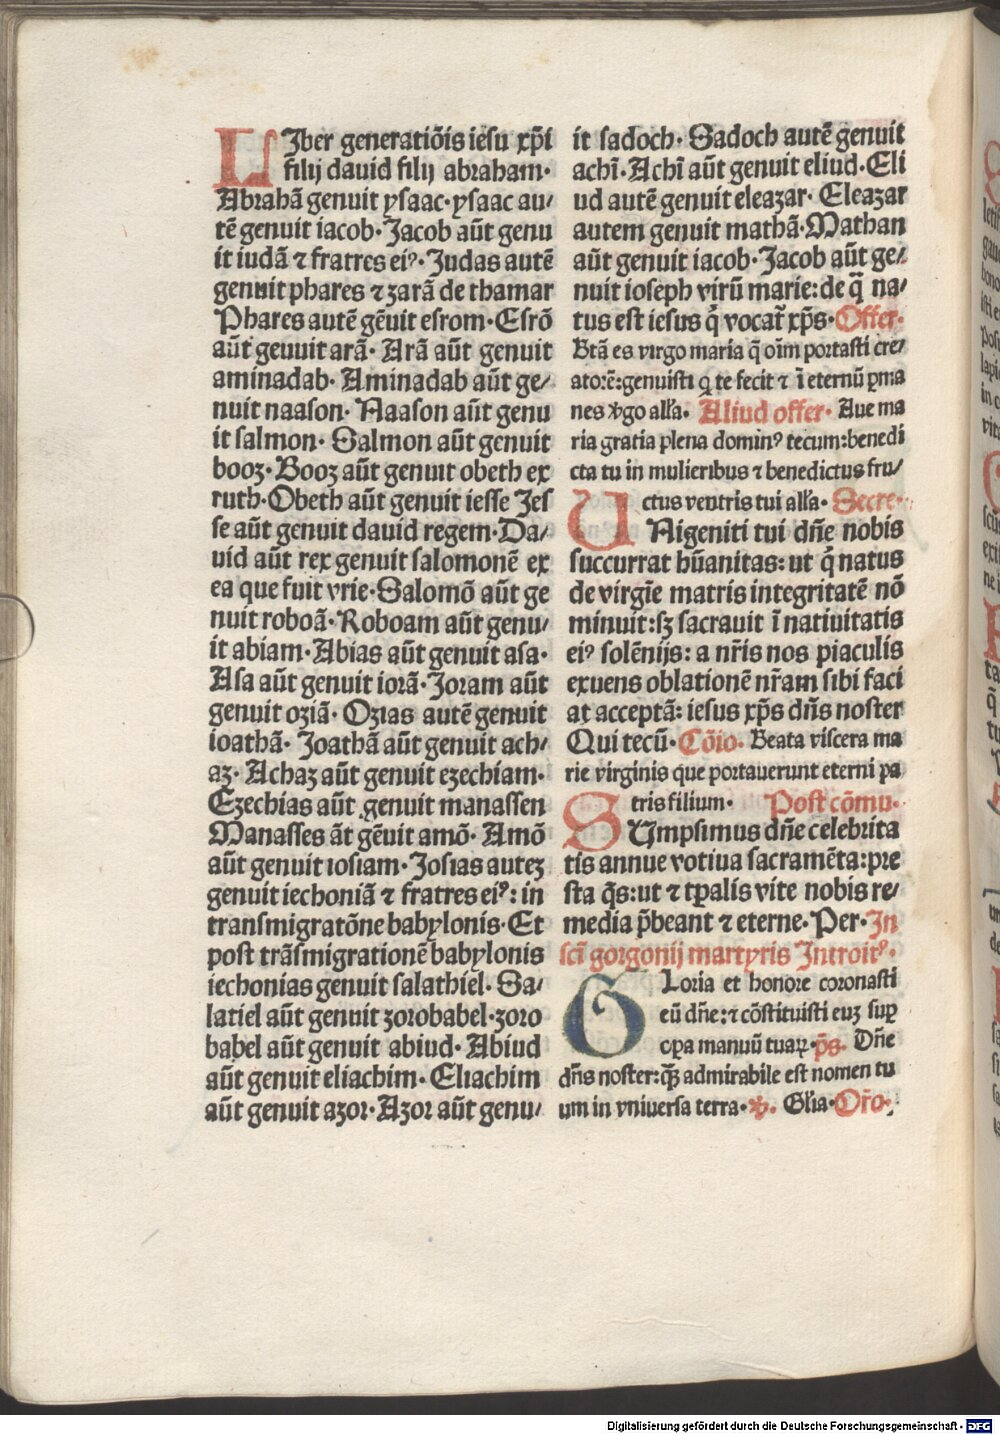 LJber generatiōis iesu xp̄i
filij dauid filij abraham·
Abrahā genuit ysaac·ysaac au/
tē genuit iacob·Jacob aūt genu
it iudā ⁊ fratres eiꝰ·Judas autē
genuit phares ⁊ zarā de thamar
Phares autē gēuit esrom·Esrō
aūt geuuit arā· Arā aūt genuit
aminadab· Aminadab aūt ge/
nuit naason· Naason aūt genu
it salmon· Salmon aūt genuit
booz·Booz aūt genuit obeth ex
ruth·Obeth aūt genuit iesse Jes
se aūt genuit dauid regem·Da/
uid aūt rex genuit salomonē ex
ea que fuit vrie·Salomō aūt ge
nuit roboā·Roboam aūt genu/
it abiam·Abias aūt genuit asa·
Asa aūt genuit iorā·Joram aūt
genuit oziā· Ozias autē genuit
ioathā· Joathā aūt genuit ach/
az· Achaz aūt genuit ezechiam·
Ezechias aūt genuit manassen
Manasses āt gēuit amō· Amō
aūt genuit iosiam·Josias autez
genuit iechoniā ⁊ fratres eiꝰ: in
transmigratōne babylonis·Et
post trāsmigrationē babylonis
iechonias genuit salathiel· Sa/
latiel aūt genuit zorobabel·zoro
babel aūt genuit abiud· Abiud
aūt genuit eliachim· Eliachim
aūt genuit azor·Azor aūt genu/
it sadoch· Sadoch autē genuit
achī·Achī aūt genuit eliud·Eli
ud autē genuit eleazar· Eleazar
autem genuit mathā·Mathan
aūt genuit iacob·Jacob aūt ge/
nuit ioseph virū marie:de q̄ na/
tus est iesus q̄ vocat̄ xp̄s·Offer·
Btā es virgo maria q̄ oīm portasti cre/
atorē:genuisti q te fecit ⁊ ī eternū ꝑma
nes v̓go all̓a· Aliud offer· Aue ma
ria gratia plena dominꝰ tecum:benedi
cta tu in mulieribus ⁊ benedictus fru/
ctus ventris tui all̓a· Secre·
UNigeniti tui dn̄e nobis
succurrat hūanitas: ut q̄ natus
de virgīe matris integritatē nō
minuit:sꝫ sacrauit ī natiuitatis
eiꝰ solēnijs: a nr̄is nos piaculis
exuens oblationē nr̄am sibi faci
at acceptā: iesus xp̄s dn̄s noster
Qui tecū·Cōio· Beata viscera ma
rie virginis que portauerunt eterni pa
tris filium· Post cōmu·
SUmpsimus dn̄e celebrita
tis annue votiua sacramēta:pre
sta q̄s:ut ⁊ tp̄alis vite nobis re/
media p̄beant ⁊ eterne·Per·In
scī gorgonij martyris Introitꝰ·
GLoria et honore coronasti
eū dn̄e:⁊ cōstituisti euz suꝑ
oꝑa manuū tuaꝝ·p̄s· Dn̄e
dn̄s noster:qꝫ admirabile est nomen tu
um in vniuersa terra·℣· Gl̓ia·Or̄o·
Digitalisierung gefördert durch die Deutsche Forschungsgemeinschaft - DFG